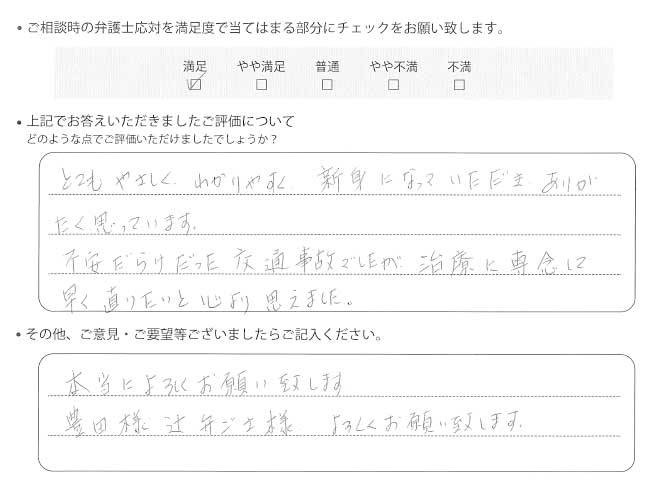 • ご相談時の弁護士応対を満足度で当てはまる部分にチェックをお願い致します。
満足 やや満足 普通 やや不満 不満
☑ □ □ □ □
• 上記でお答えいただきましたご評価について
どのような点でご評価いただけましたでしょうか？
とてもやさしく、わかりやすく 新身になっていただき ありが
たく思っています。
不安だらけだった交通事故でしたが、治療に専念して
早く直りたいと心より思えました。
• その他、ご意見・ご要望等ございましたらご記入ください。
本当によろしくお願い致します
豊田様 辻弁ご士様 よろしくお願い致します。